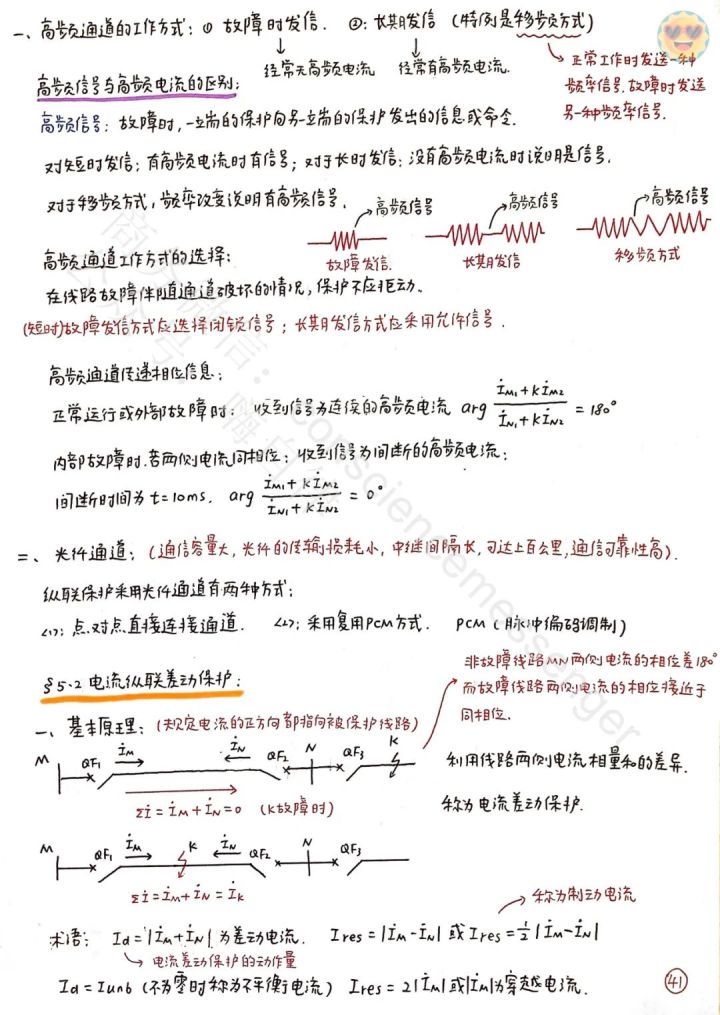 一、高频通道的工作方式：① 故障时发信. ②：长期发信（特例是移频方式）
经常无高频电流 经常有高频电流.
正常工作时发送一种
频率信号.故障时发送
另一种频率信号.
高频信号与高频电流的区别：
高频信号：故障时，一端的保护向另一端的保护发出的信息或命令.
对短时发信：有高频电流时有信号；对于长时发信：没有高频电流时说明是信号.
对于移频方式，频率改变说明有高频信号.
高频信号 高频信号 高频信号
故障发信. 长期发信 移频方式
高频通道工作方式的选择：
在线路故障伴随通道破坏的情况，保护不应拒动.
(短时)故障发信方式应选择闭锁信号；长期发信方式应采用允许信号.
高频通道传递相位信息：
正常运行或外部故障时：收到信号为连续的高频电流 arg (İM1+kİM2)/(İN1+kİN2) = 180°
内部故障时.若两侧电流同相位：收到信号为间断的高频电流；
间断时间为t=10ms. arg (İM1+kİM2)/(İN1+kİN2) = 0°
二、光纤通道：（通信容量大，光纤的传输损耗小，中继间隔长，可达上百公里，通信可靠性高）.
纵联保护采用光纤通道有两种方式：
<1>：点对点直接连接通道. <2>：采用复用PCM方式. PCM（脉冲编码调制）
§5.2 电流纵联差动保护：
非故障线路MN两侧电流的相位差180°
而故障线路两侧电流的相位接近于
同相位.
一、基本原理：（规定电流的正方向都指向被保护线路）
M QF1 İM İN QF2 N QF3 K
Σİ=İM+İN=0 (K故障时)
利用线路两侧电流相量和的差异.
称为电流差动保护.
M QF1 İM K İN QF2 N QF3
Σİ=İM+İN=İK
称为制动电流
术语：Id=|İM+İN|为差动电流. Ires=|İM-İN|或Ires=½|İM-İN|
电流差动保护的动作量
Id=Iunb（不为零时称为不平衡电流） Ires=2|İM|或|İM|为穿越电流.
41
商务微信：consciencemessenger